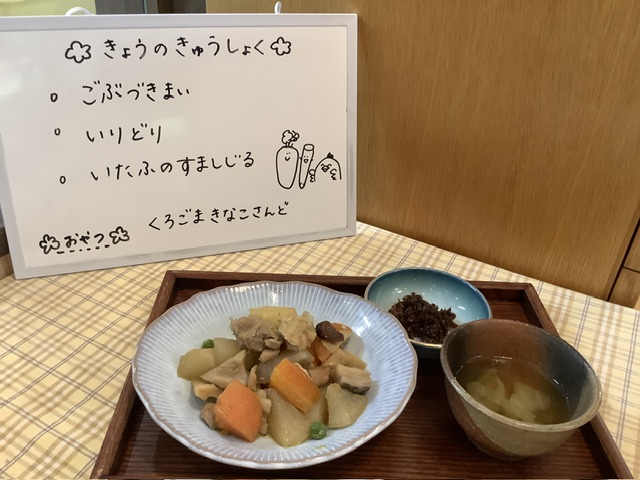 きょうのきゅうしょく
ごぶづきまい
いりどり
いたふのすましじる
おやつ くろごまきなこさんど